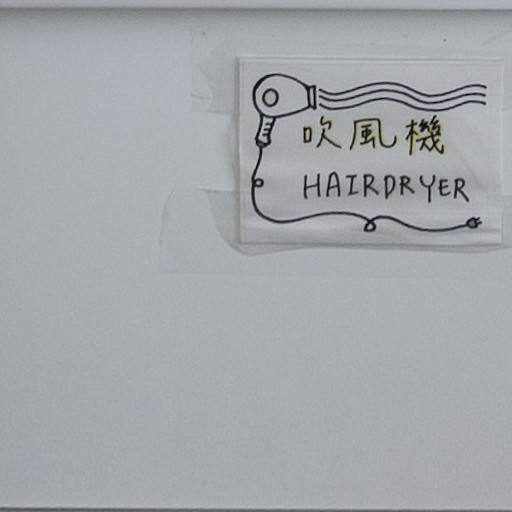 吹風機
HAIRDRYER